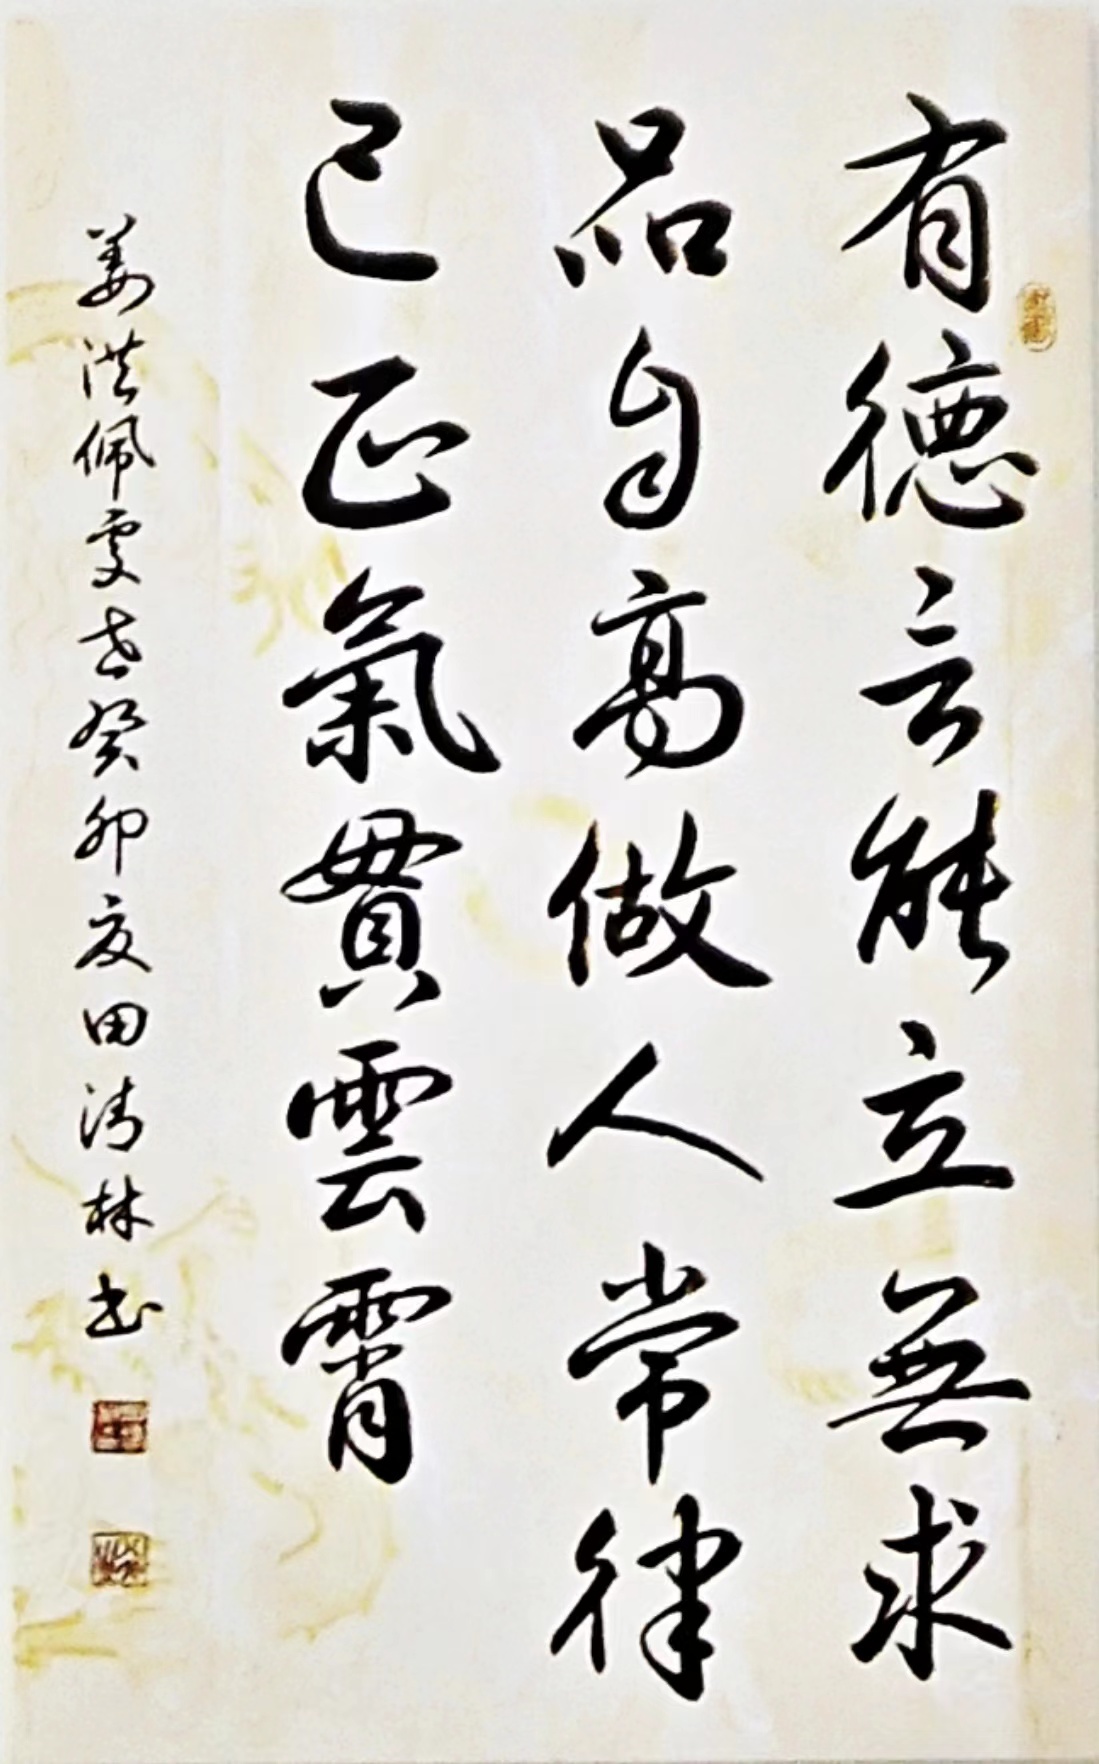 有德言能立無求
品自高做人常律
己正氣貫雲霄
姜洪佩雯古癸卯夏田清林书